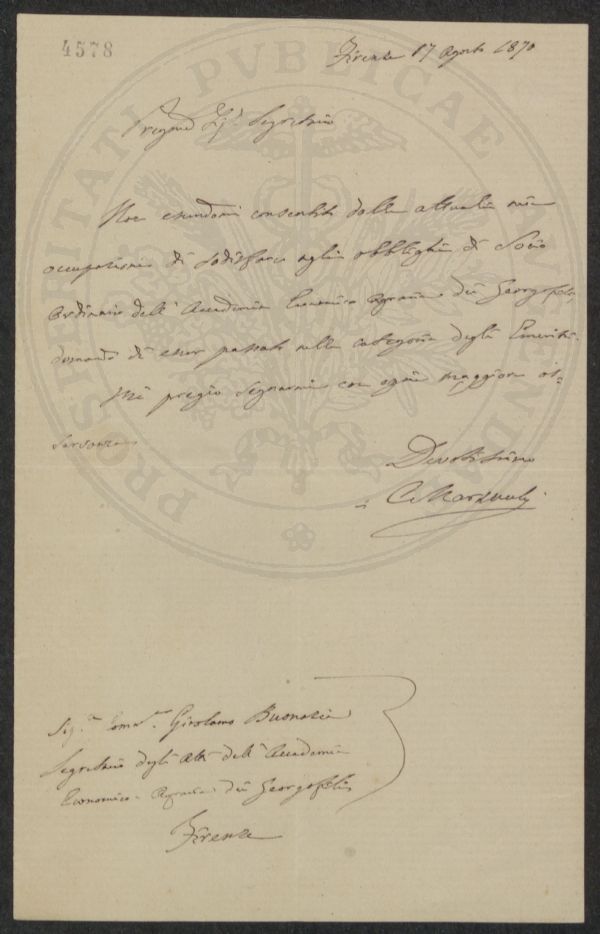 4578
Firenze 17 Agosto 1870
Pregmo Sigr Segretario
Non essendomi consentito dalle attuali mie
occupazioni di sodisfare agli obblighi di Socio
Ordinario dell' Accademia Economico Agraria dei Georgofili,
domando di esser passato nella categoria degli Emeriti.
Mi pregio segnarmi con ogni maggiore os=
servanza
Devotissimo
C.
Sig.r Comm.re Girolamo Buonazia
Segretario degli Atti dell' Accademia
Economico-Agraria dei Georgofili
Firenze
PROSPERITATI PVBLICAE